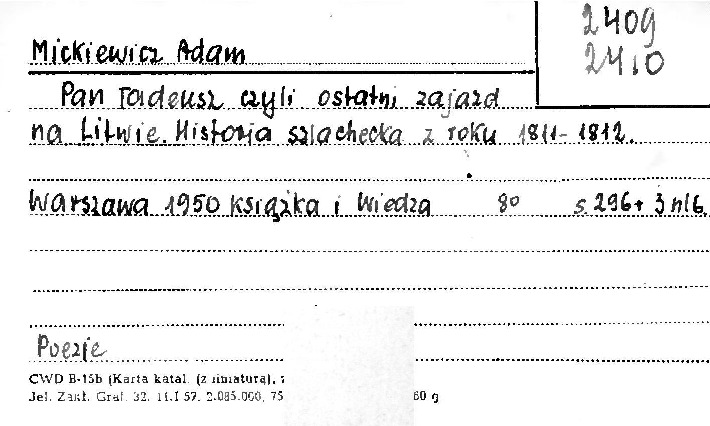 2409
2410
Mickiewicz Adam
Pan Tadeusz czyli ostatni zajazd
na Litwie. Historja szlachecka z roku 1811-1812.
Warszawa 1950 Książka i Wiedza 8° s. 296 + 3 nlb.
Poezje
CWD B-15b (Karta katal. (z liniaturą),
Jel. Zakł. Graf. 32. 11.I 57. 2.085.000, 75 60 g